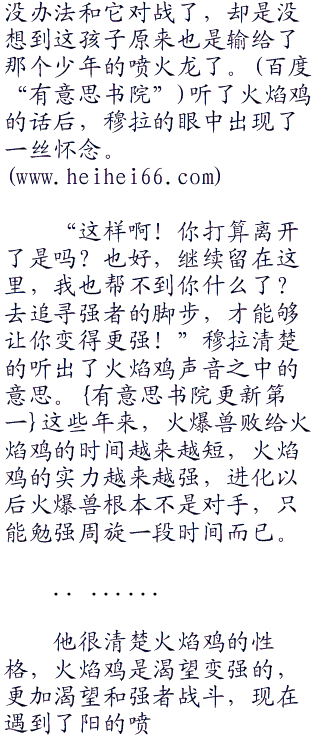 没办法和它对战了，却是没
想到这孩子原来也是输给了
那个少年的喷火龙了。(百度
“有意思书院”)听了火焰鸡
的话后，穆拉的眼中出现了
一丝怀念。
(www.heihei66.com)
“这样啊！你打算离开
了是吗？也好，继续留在这
里，我也帮不到你什么了？
去追寻强者的脚步，才能够
让你变得更强！”穆拉清楚
的听出了火焰鸡声音之中的
意思。{有意思书院更新第
一}这些年来，火爆兽败给火
焰鸡的时间越来越短，火焰
鸡的实力越来越强，进化以
后火爆兽根本不是对手，只
能勉强周旋一段时间而已。
.. ......
他很清楚火焰鸡的性
格，火焰鸡是渴望变强的，
更加渴望和强者战斗，现在
遇到了阳的喷